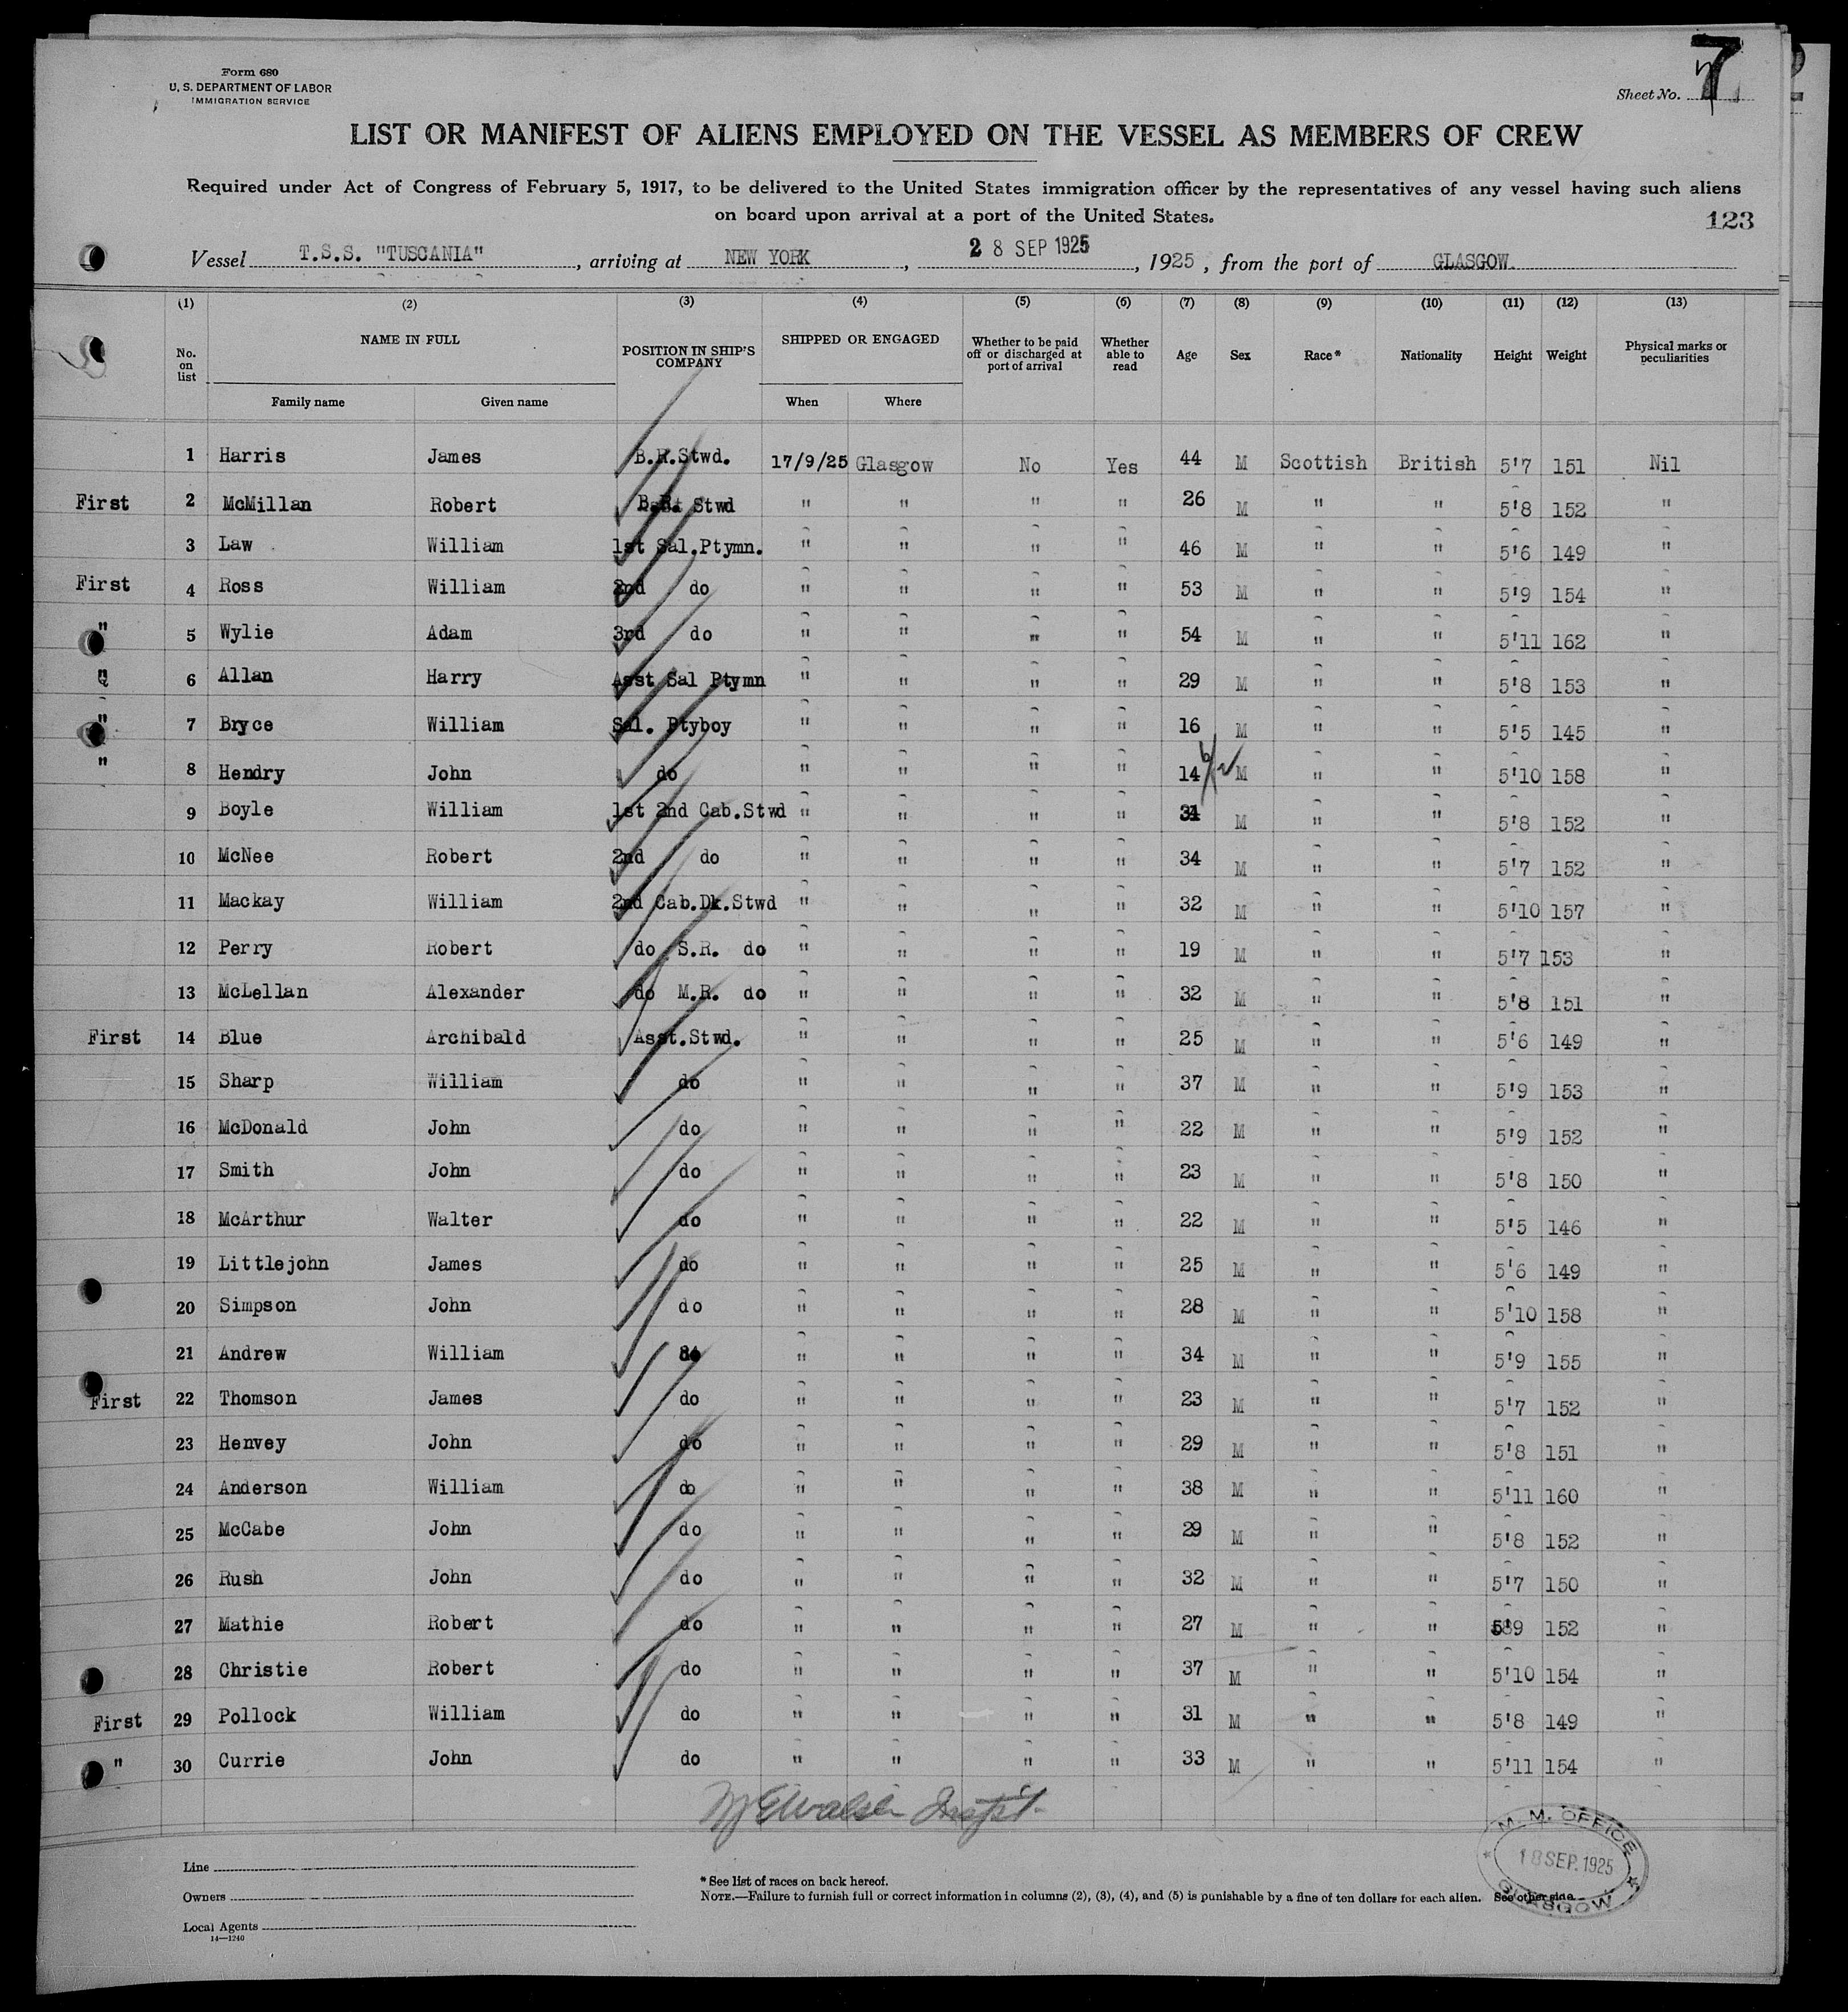 Form 680
U. S. DEPARTMENT OF LABOR
IMMIGRATION SERVICE
Sheet No. 7
LIST OR MANIFEST OF ALIENS EMPLOYED ON THE VESSEL AS MEMBERS OF CREW
Required under Act of Congress of February 5, 1917, to be delivered to the United States immigration officer by the representatives of any vessel having such aliens
on board upon arrival at a port of the United States.
123
Vessel T.S.S. "TUSCANIA", arriving at NEW YORK, 28 SEP 1925, 1925, from the port of GLASGOW.
(1) (2) (3) (4) (5) (6) (7) (8) (9) (10) (11) (12) (13)
No. on list NAME IN FULL POSITION IN SHIP'S COMPANY SHIPPED OR ENGAGED Whether to be paid off or discharged at port of arrival Whether able to read Age Sex Race* Nationality Height Weight Physical marks or peculiarities
Family name Given name When Where
1 Harris James B.R.Stwd. 17/9/25 Glasgow No Yes 44 M Scottish British 5'7 151 Nil
First 2 McMillan Robert B.R. Stwd " " " " 26 M " " 5'8 152 "
3 Law William 1st Sal.Ptymn. " " " " 46 M " " 5'6 149 "
First 4 Ross William 2nd do " " " " 53 M " " 5'9 154 "
" 5 Wylie Adam 3rd do " " " " 54 M " " 5'11 162 "
" 6 Allan Harry Asst Sal Ptymn " " " " 29 M " " 5'8 153 "
" 7 Bryce William Sal. Ptyboy " " " " 16 M " " 5'5 145 "
" 8 Hendry John do " " " " 14 6/12 M " " 5'10 158 "
9 Boyle William 1st 2nd Cab.Stwd " " " " M " " 5'8 152 "
10 McNee Robert 2nd do " " " " 34 M " " 5'7 152 "
11 Mackay William 2nd Cab.Dk.Stwd " " " " 32 M " " 5'10 157 "
12 Perry Robert do S.R. do " " " " 19 M " " 5'7 153 "
13 McLellan Alexander do M.R. do " " " " 32 M " " 5'8 151 "
First 14 Blue Archibald Asst.Stwd. " " " " 25 M " " 5'6 149 "
15 Sharp William do " " " " 37 M " " 5'9 153 "
16 McDonald John do " " " " 22 M " " 5'9 152 "
17 Smith John do " " " " 23 M " " 5'8 150 "
18 McArthur Walter do " " " " 22 M " " 5'5 146 "
19 Littlejohn James do " " " " 25 M " " 5'6 149 "
20 Simpson John do " " " " 28 M " " 5'10 158 "
21 Andrew William do " " " " 34 M " " 5'9 155 "
First 22 Thomson James do " " " " 23 M " " 5'7 152 "
23 Henvey John do " " " " 29 M " " 5'8 151 "
24 Anderson William do " " " " 38 M " " 5'11 160 "
25 McCabe John do " " " " 29 M " " 5'8 152 "
26 Rush John do " " " " 32 M " " 5'7 150 "
27 Mathie Robert do " " " " 27 M " " 5'9 152 "
28 Christie Robert do " " " " 37 M " " 5'10 154 "
First 29 Pollock William do " " " " 31 M " " 5'8 149 "
" 30 Currie John do " " " " 33 M " " 5'11 154 "
Line
Owners
Local Agents
14—1240
* See list of races on back hereof.
NOTE.—Failure to furnish full or correct information in columns (2), (3), (4), and (5) is punishable by a fine of ten dollars for each alien. See other side.
M. M. OFFICE
18 SEP. 1925
GLASGOW